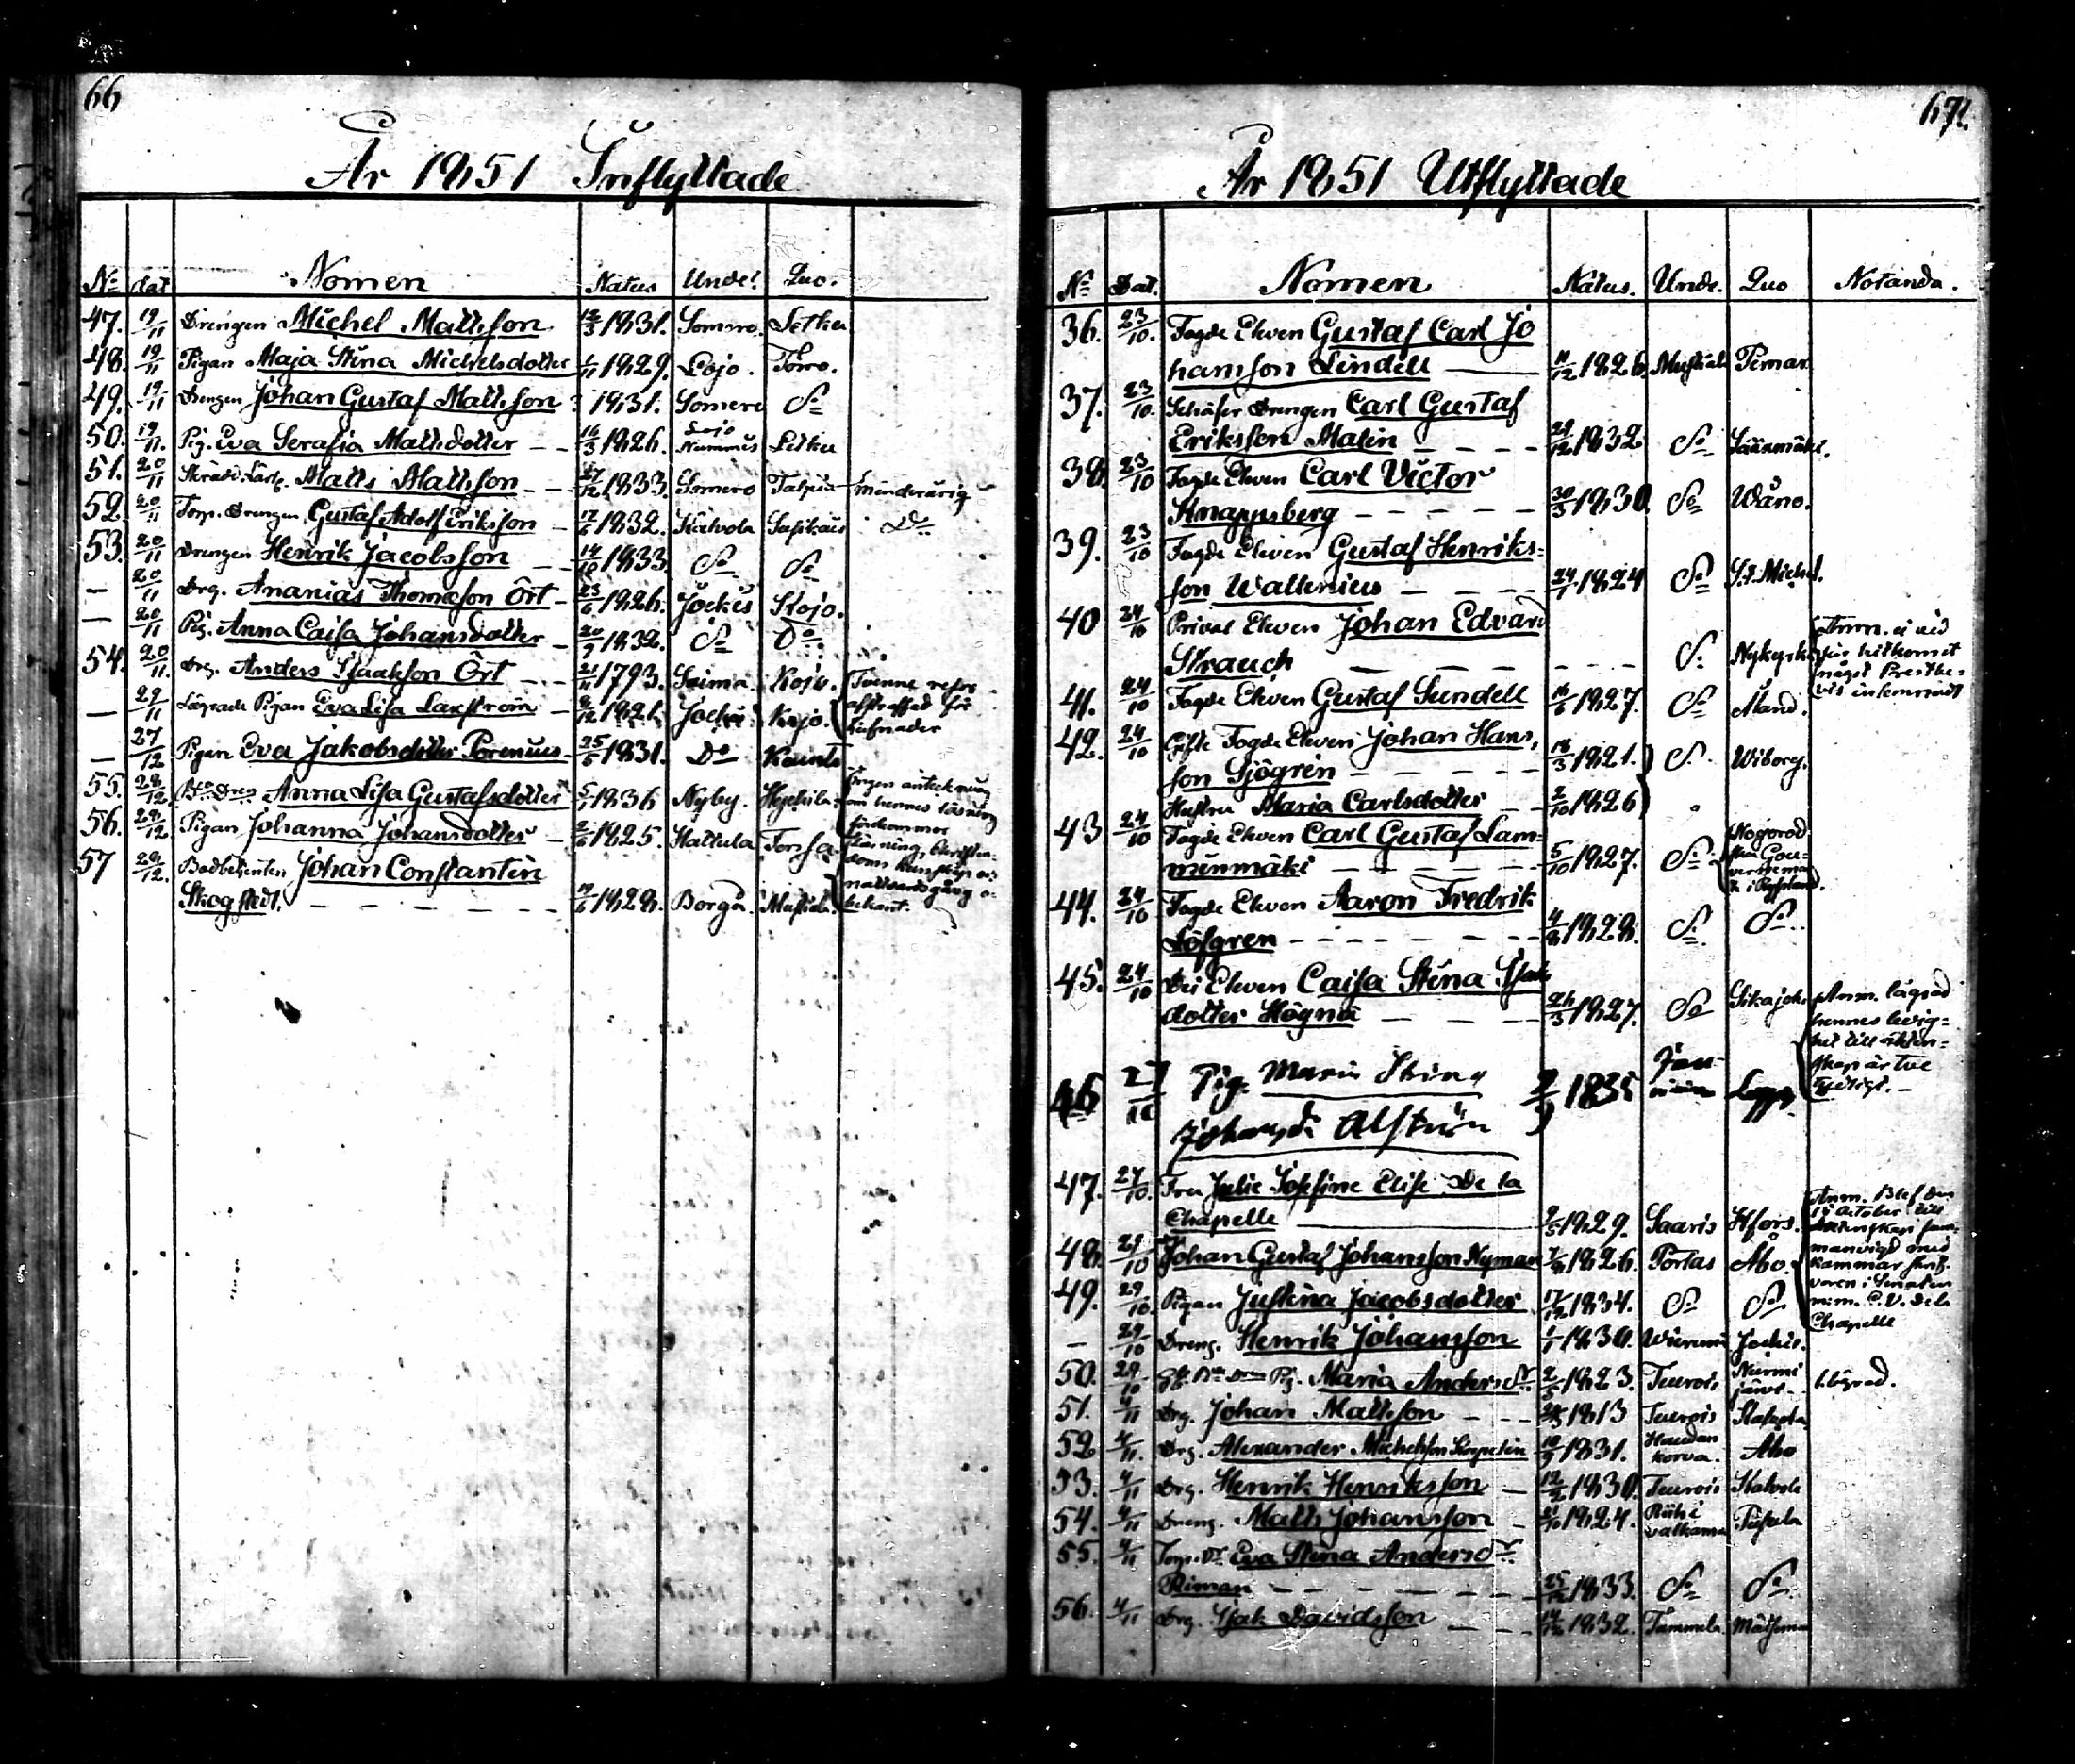 66
År 1851 Inflyttade
No dat Nomen Natus Unde? Quo.
47. 19/11 Drengen Michel Mattsson 12/3 1831. Somero. Letku
48. 19/11 Pigan Maja Stina Michelsdotter 1/11 1829. Lojo. Torro.
49. 19/11 Drengen Johan Gustaf Mattsson ? 1831. Somero Do
50. 19/11. Pig. Eva Serafia Mattsdotter 16/3 1826. Lojo Nummis Letku
51. 20/11 Matts Mattsson 27/12 1833. Somero minderårig
52. 20/11 Torp. Drengen Gustaf Adolf Eriksson 17/6 1832. Kalvola Do
53. 20/11 Drengen Henrik Jacobsson 14/10 1833 Do Do
— 20/11 Drg. Ananias Thomasson Ört 23/6 1826. Jockis Kojo.
— 20/11 Pig. Anna Caisa Johansdotter 20/9 1832. Do Do
54. 20/11. Drg. Anders Isaaksson Ört 21/11 1793. Kojo. Tvenne resor
— 22/11 Lägrade Pigan Eva Lisa Laxström 2/12 1821. Jockis Kojo. afstraffad för tjufnader
— 27/12 Pigan Eva Jakobsdotter Porenius 25/5 1831. Do
55. 28/12. Anna Lisa Gustafsdotter 5/1 1836 Nyby. Ingen anteckning om hennes läsning
56. 29/12 Pigan Johanna Johansdotter 2/6 1825. Hattula Forssa förekommer
57 29/12. Bodbetjenten Johan Constantin
Skogstedt. 19/6 1828. Borgå. Mustiala. nattvardsgång o- bekant.
67.
År 1851 Utflyttade
No Dat. Nomen Natus. Unde. Quo Notanda.
36. 23/10. Fogde Eleven Gustaf Carl Jo
hansson Lindell 11/12 1826. Mustiala Pemar
37. 23/10. Schäfer Drengen Carl Gustaf
Eriksson Malin 29/12 1832 Do
38. 23/10 Fogde Eleven Carl Victor
Knappsberg 30/3 1830 Do Wåno.
39. 23/10 Fogde Eleven Gustaf Henriks-
son Wallenius 24/1 1824 Do S:t Michel.
40 24/10 Privat Eleven Johan Edvard
Strauch Do Nykyrka Anm. ei vid sin hitkomst något Prestbe- vis inlemnadt
41. 24/10 Fogde Eleven Gustaf Sundell 16/6 1827. Do Åland.
42. 24/10 Gifte Fogde Eleven Johan Hans-
son Sjögren 18/3 1821. Do Wiborg.
Hustru Maria Carlsdotter 2/10 1826
43 24/10 Fogde Eleven Carl Gustaf Lam-
minmäki 5/10 1827. Do Nogorod
44. 24/10 Fogde Eleven Aaron Fredrik
Löfgren 4/8 1828. Do Do
45. 24/10 Dei Eleven Caisa Stina Isaks
dotter Högna 26/3 1827. Do Sikajoki Anm. lägrad hennes ledig- het till äkten- skap är tve tydligt.
46 Pig. Maria Stina 2/9 1835
Johansd. Alström
47. 27/10. Fru Julie Josefine Elise De la
Chapelle 9/5 1829. Saaris Hfors. Anm. Blef den 15 October till äktenskap sam- manvigd med
48. 29/10 Johan Gustaf Johansson Nyman 7/8 1826. Portas Åbo. Kammar skrif- varen i Senaten
49. 29/10. Pigan Justina Jacobsdotter 17/12 1834. Do Do m.m. C.V. De la Chapelle
— 29/10 Dreng. Henrik Johansson 1/1 1830. Jockis.
50. 29/10 Pig. Maria Andersdr 2/5 1823. Teurois Nurmi järvi lägrad.
51. 4/11 Drg. Johan Mattsson 1813 Teurois
52 4/11. Drg. Alexander Michelsson 18/9 1831. Haudan korva. Åbo
53. 4/11 Drg. Henrik Henriksson 12/2 1830. Teurois Kalvola
54. 4/11 Dreng. Matts Johansson 1824.
55. 4/11 Torp. Dr Eva Stina Andersdr
Riman 25/12 1833. Do Do
56. 4/11 Drg. Isak Davidsson 14/12 1832. Tammela.